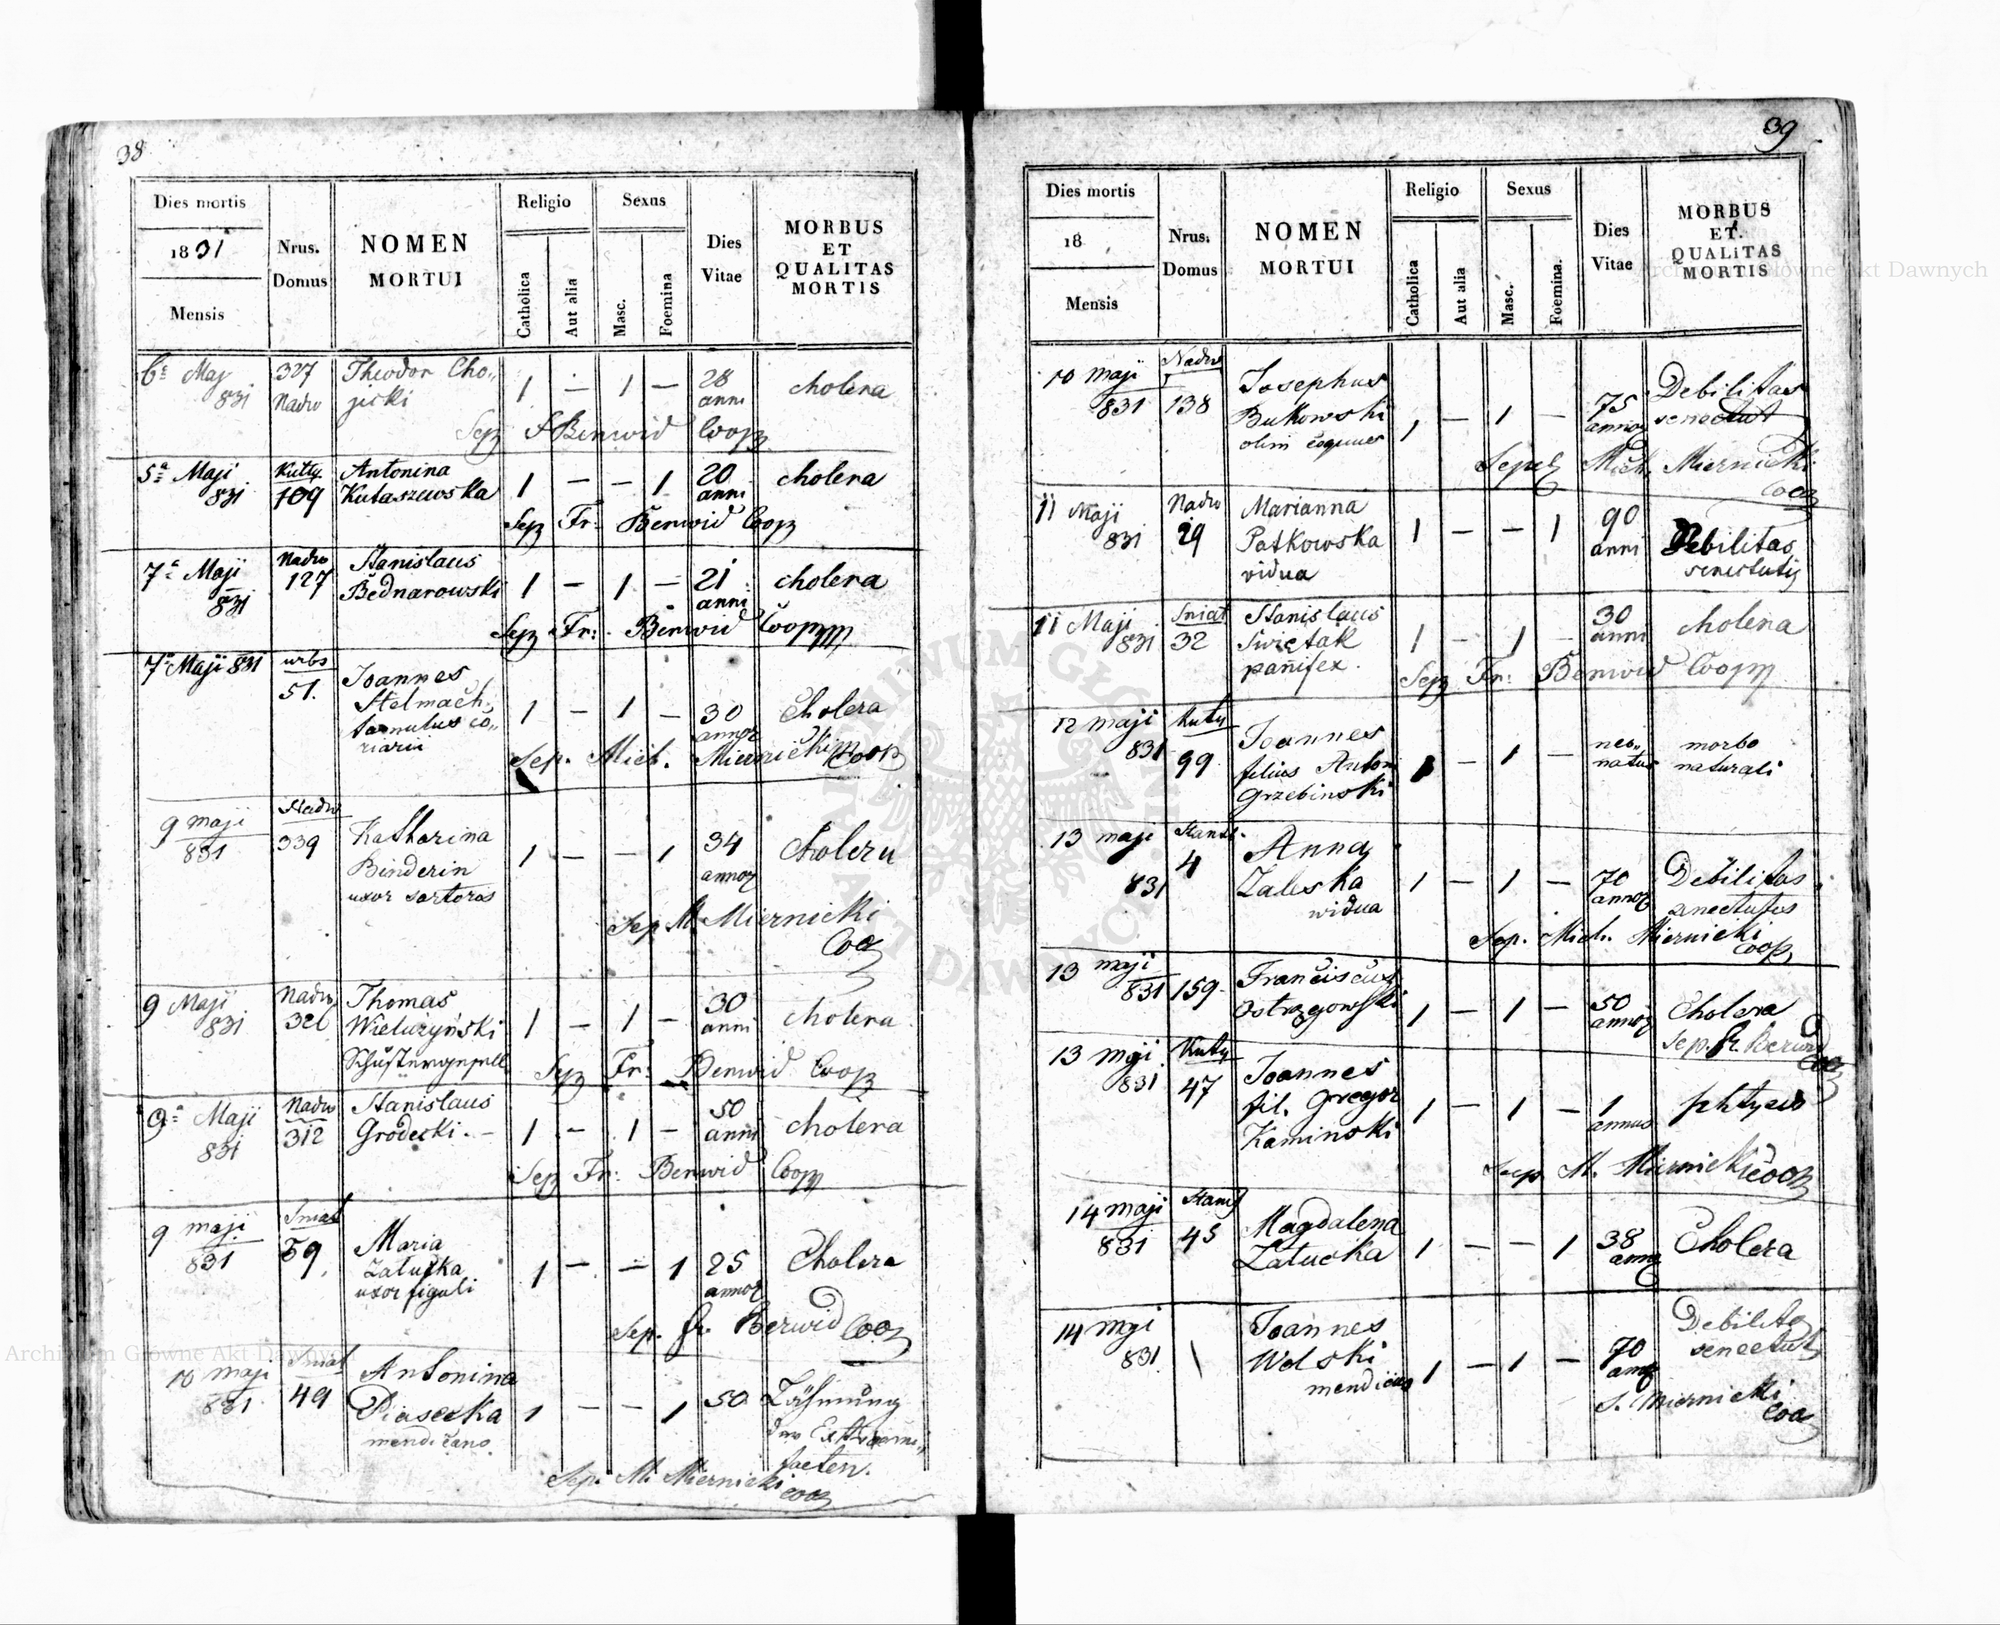 38
Dies mortis
1831
Mensis
Nrus.
Domus
NOMEN
MORTUI
Religio
Catholica
Aut alia
Sexus
Masc.
Foemina
Dies
Vitae
MORBUS
ET
QUALITAS
MORTIS
6 Maj 327 Theodor Cho 1 — 1 — 28 cholera
831 Nadw anni
Sep Berwid Coop
5a Maji Kutty Antonina 1 — — 1 20 cholera
831 109 anni
Sep Fr: Berwid Coop
7a Maji Nadw Stanislaus 1 — 1 — 21 cholera
831 127 Bednarowski anni
Sep Fr: Berwid Coop
7a Maji 831 urbs Joannes
51. Stelmach 1 — 1 — 30 Cholera
Sep. Mich. Miernicki Coop
9 maji Nadw Katharina 1 — — 1 34 Cholera
831 339 Binderin
uxor sartoris
Sep M. Miernicki
Coop
9 Maji Nadw Thomas 1 — 1 — 30 cholera
831 Wieliczyński anni
Sep Fr: Berwid Coop
9a Maji Nadw Stanislaus 1 — 1 — 50 cholera
831 312 Grodecki. — anni
Sep Fr: Berwid Coop
9 maji Sniat Maria 1 — — 1 25 Cholera
831 59 Załucka
uxor figuli
Sep. fr. Berwid Coop
10 maji Sniat Antonina
831 49 Piasecka 1 — — 1 50 Lähmung
der Extremi
taeten.
Sep. M. Miernicki
Coop
39
Dies mortis
18
Mensis
Nrus.
Domus
NOMEN
MORTUI
Religio
Catholica
Aut alia
Sexus
Masc.
Foemina.
Dies
Vitae
MORBUS
ET
QUALITAS
MORTIS
10 maji Nadw Josephus Debilitas
831 138 Bukowski 1 — 1 — 75
olim
Sepel Mich. Miernicki
Coop
11 Maji Nadw Marianna 90
831 29 Patkowska 1 — — 1 anni Debilitas
vidua senectutis
11 Maji Sniat Stanislaus 30 cholera
831 32 Swietak 1 — 1 — anni
panifex.
Sep Fr: Berwid Coop
12 maji Kuty Joannes neo morbo
831 99 filius Anton 1 — 1 — natus naturali
Grzebinski
13 maji 4 Anna
831 Zaleska 1 — 1 — 70 Debilitas
widua
Sep. Mich. Miernicki
Coop
13 maji Franciscus 50
831 159 1 — 1 — Cholera
Sep. fr. Berwid
Coop
13 maji Kuty Joannes
831 47 fil. Gregor 1 — 1 — 1
Kaminski annus
Sep M. Miernicki Coop
14 maji Magdalena
831 45 Załucka 1 — — 1 38 Cholera
14 maji Joannes Debilitas
831 Wolski 1 — 1 — 70 senectut
mendicus
S. Miernicki
Coop
Archiwum Główne Akt Dawnych